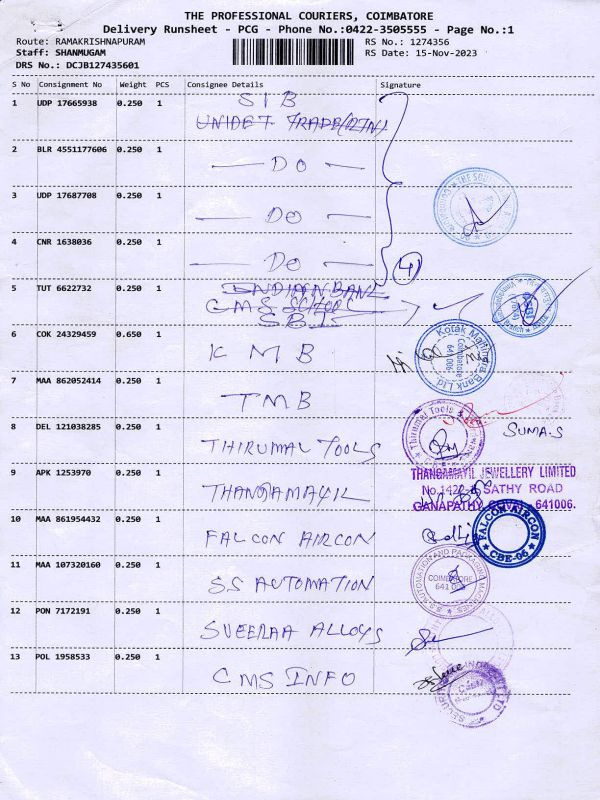 THE PROFESSIONAL COURIERS, COIMBATORE
Delivery Runsheet - PCG - Phone No.:0422-3505555 - Page No.:1
Route: RAMAKRISHNAPURAM RS No.: 1274356
Staff: SHANMUGAM RS Date: 15-Nov-2023
DRS No.: DCJB127435601
S No Consignment No Weight PCS Consignee Details Signature
1 UDP 17665938 0.250 1 SIB
UNIDET TRADE(RTN)
2 BLR 4551177606 0.250 1 — DO —
3 UDP 17687708 0.250 1 — DO —
4 CNR 1638036 0.250 1 — DO — 4
5 TUT 6622732 0.250 1 INDIAN BANK
CMS SCHOOL
SBI
6 COK 24329459 0.650 1 KMB
Kotak Mahindra Bank Ltd.
Coimbatore
641 006
7 MAA 862052414 0.250 1 TMB
8 DEL 121038285 0.250 1 THIRUMAL TOOLS
Thirumal Tools
SUMA.S
9 APK 1253970 0.250 1 THANGAMAYIL
THANGAMAYIL JEWELLERY LIMITED
SATHY ROAD
GANAPATHY 641006.
10 MAA 861954432 0.250 1 FALCON AIRCON
FALCON AIRCON
CBE-06
11 MAA 107320160 0.250 1 SS AUTOMATION
S.S AUTOMATION AND PACKAGING MACHINES
COIMBATORE
641
12 PON 7172191 0.250 1 SVEERAA ALLOYS
13 POL 1958533 0.250 1 CMS INFO